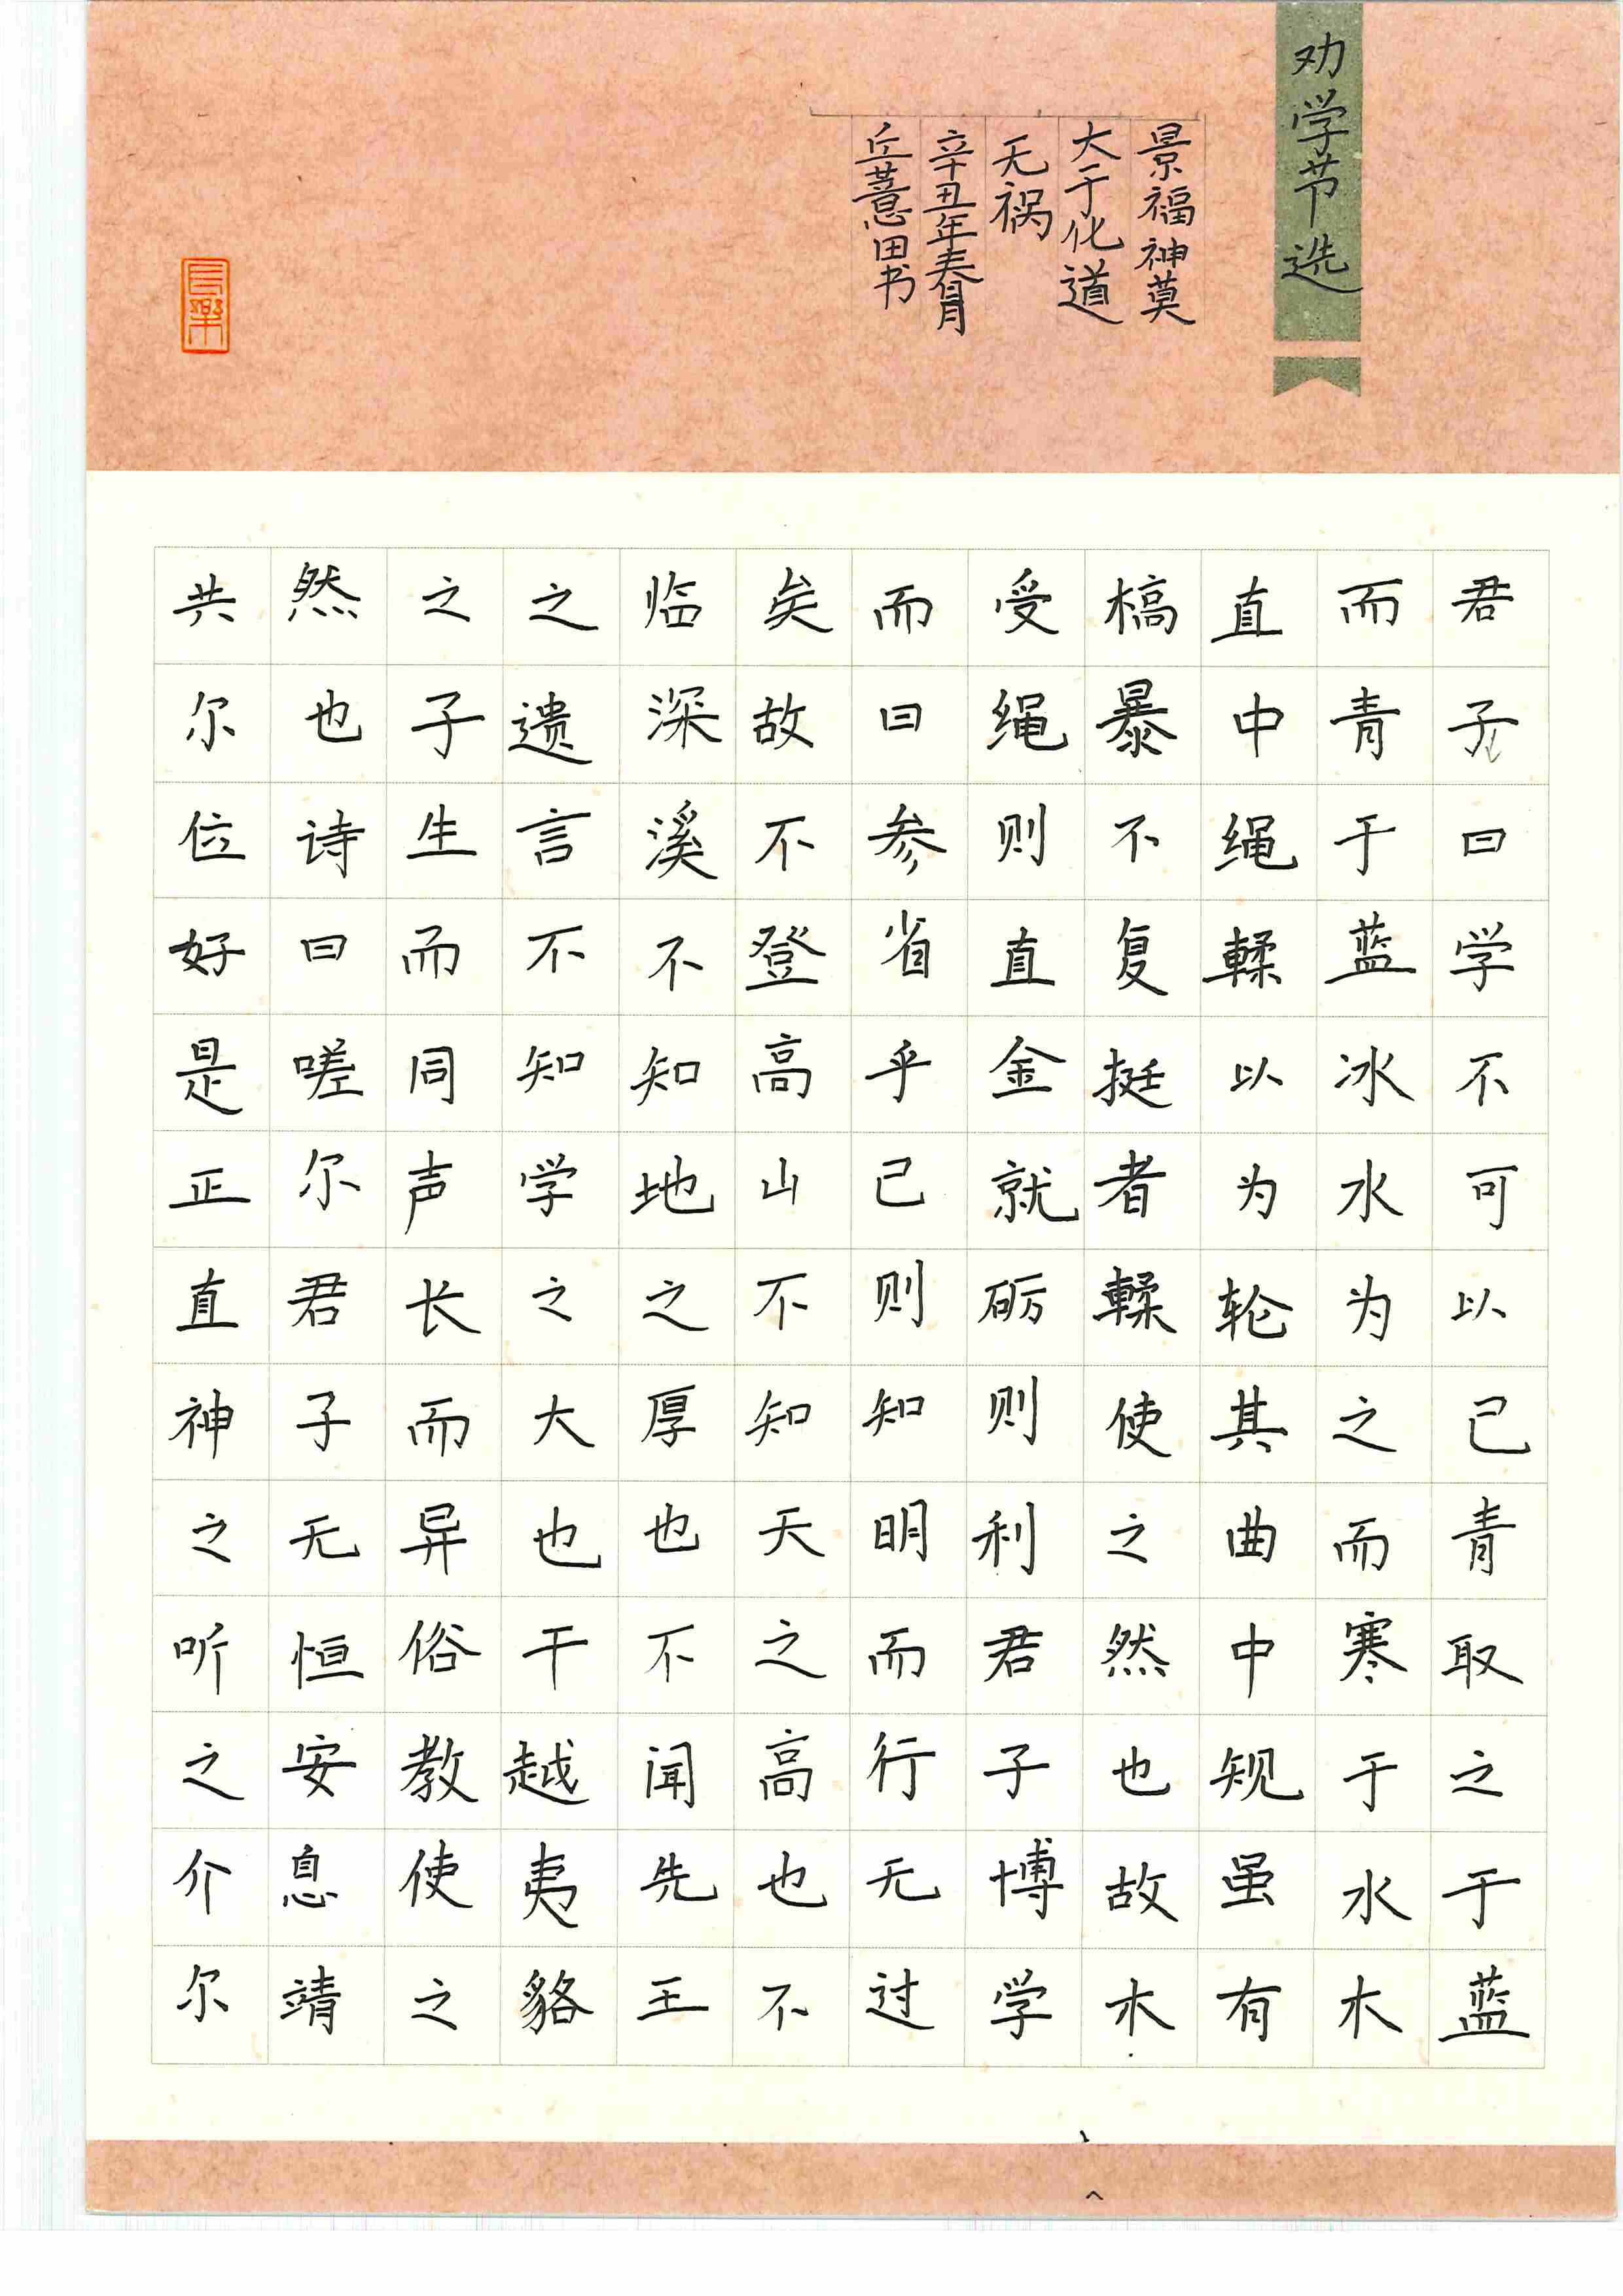 劝学节选
君子曰学不可以已青取之于蓝
而青于蓝冰水为之而寒于水木
直中绳輮以为轮其曲中规虽有
槁暴不复挺者輮使之然也故木
受绳则直金就砺则利君子博学
而日参省乎己则知明而行无过
矣故不登高山不知天之高也不
临深溪不知地之厚也不闻先王
之遗言不知学之大也干越夷貉
之子生而同声长而异俗教使之
然也诗曰嗟尔君子无恒安息靖
共尔位好是正直神之听之介尔
景福神莫
大于化道
无祸
辛丑年春月
丘薏田书